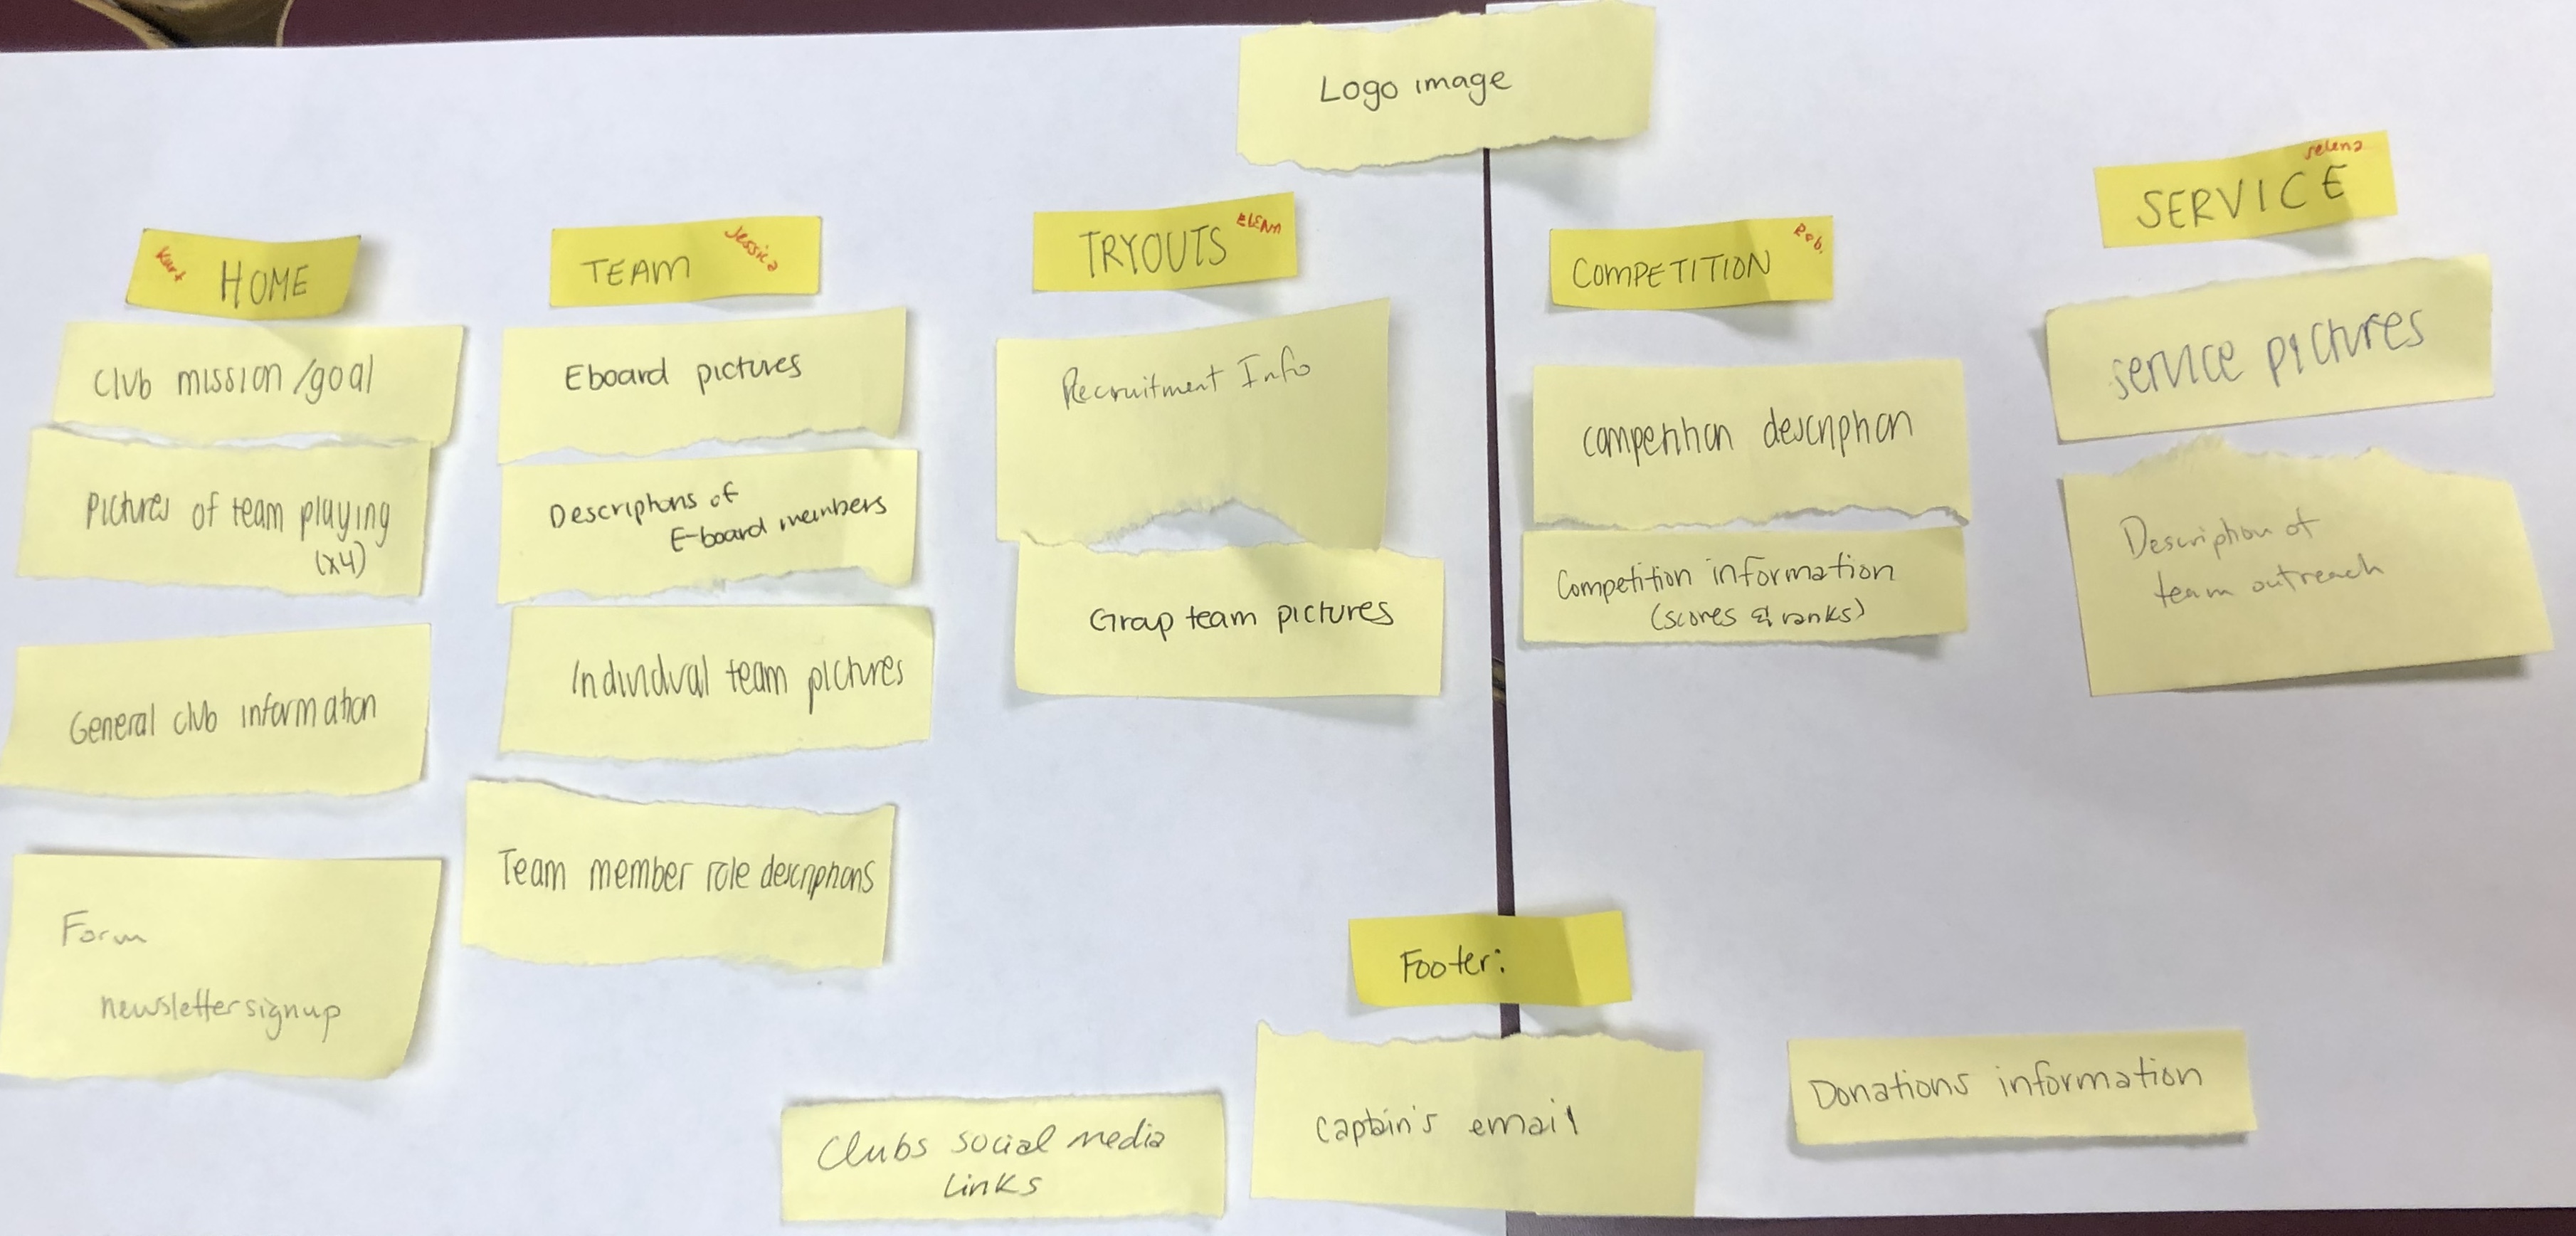 Logo image
Kurt
HOME
Club mission/goal
Pictures of team playing
(x4)
General club information
Form
newsletter signup
Jessica
TEAM
Eboard pictures
Descriptions of
E-board members
Individual team pictures
Team member role descriptions
ELENA
TRYOUTS
Recruitment Info
Group team pictures
Rob.
COMPETITION
competition description
Competition information
(scores & ranks)
selena
SERVICE
service pictures
Description of
team outreach
Footer:
Clubs social media
links
captain's email
Donations information